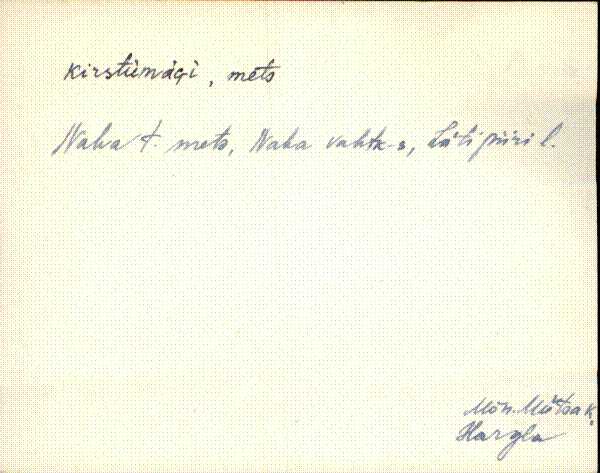 kirstümägi, mets
Naha t. mets, Naha vahtk-s, Läti piiri l.
Mõn. Mütsa k.
Hargla